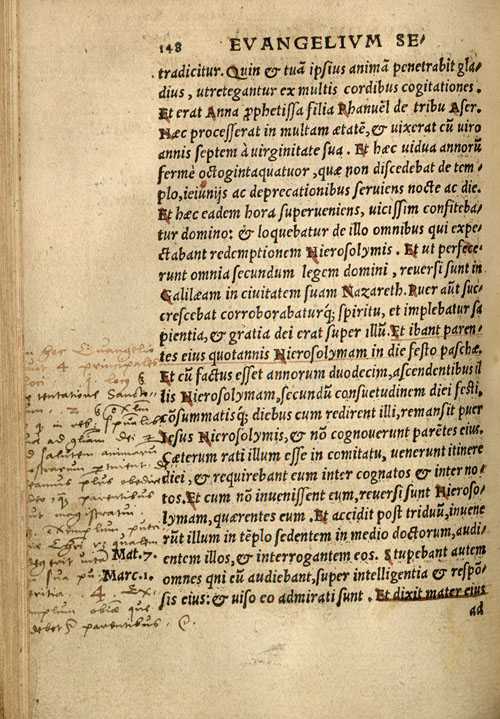 148 EVANGELIVM SE⸗
tradicitur. Quin & tuā ipsius animā penetrabit gla⸗
dius, utretegantur ex multis cordibus cogitationes.
Et erat Anna prophetissa filia Phanuël de tribu Aser.
Hæc processerat in multam ætatē, & uixerat cū uiro
annis septem à uirginitate sua. Et hæc uidua annorū
fermè octogintaquatuor, quæ non discedebat de tem⸗
plo, ieiunijs ac deprecationibus seruiens nocte ac die.
Et hæc eadem hora superueniens, uicissim confiteba⸗
tur domino: & loquebatur de illo omnibus qui expe⸗
ctabant redemptionem Hierosolymis. Et ut perfece⸗
runt omnia secundum legem domini, reuersi sunt in
Galilæam in ciuitatem suam Nazareth. Puer aūt suc⸗
crescebat corroborabaturq; spiritu, et implebatur sa
pientia, & gratia dei erat super illū. Et ibant paren⸗
tes eius quotannis Hierosolymam in die festo paschæ.
Et cū factus esset annorum duodecim, ascendentibus il
lis Hierosolymam, secundū consuetudinem diei festi,
cōsummatisq; diebus cum redirent illi, remansit puer
Iesus Hierosolymis, & nō cognouerunt parētes eius.
Cæterum rati illum esse in comitatu, uenerunt itinere
diei, & requirebant eum inter cognatos & inter no⸗
tos. Et cum nō inuenissent eum, reuersi sunt Hieroso⸗
lymam, quærentes eum. Et accidit post triduū, inuene
rūt illum in tēplo sedentem in medio doctorum, audi⸗
entem illos, & interrogantem eos. Stupebant autem
omnes qni eū audiebant, super intelligentia & respō⸗
sis eius: & uiso eo admirati sunt. Et dixit mater eius
ad
hac Euangelio
4 principales
tentationis
ad salutem animarum
parentibus
Exemplum
Mat. 7.
Marc. 1.
4. Ex⸗
debet parentibus